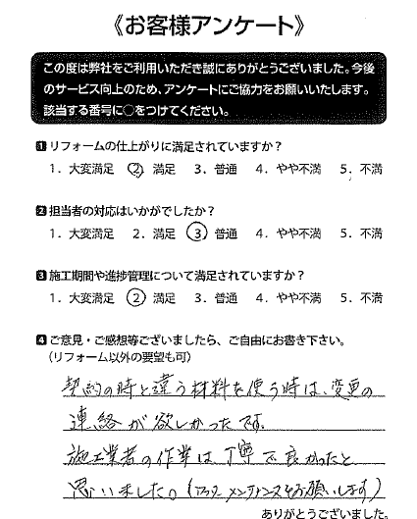 《お客様アンケート》
この度は弊社をご利用いただき誠にありがとうございました。今後
のサービス向上のため、アンケートにご協力をお願いいたします。
該当する番号に○をつけてください。
1 リフォームの仕上がりに満足されていますか？
1．大変満足 2．満足 3．普通 4．やや不満 5．不満
2 担当者の対応はいかがでしたか？
1．大変満足 2．満足 3．普通 4．やや不満 5．不満
3 施工期間や進捗管理について満足されていますか？
1．大変満足 2．満足 3．普通 4．やや不満 5．不満
4 ご意見・ご感想等ございましたら、ご自由にお書き下さい。
（リフォーム以外の要望も可）
契約の時と違う材料を使う時は、変更の
連絡が欲しかったです。
施工業者の作業は丁寧で良かったと
思いました。（アフターメンテナンスをお願いします）
ありがとうございました。